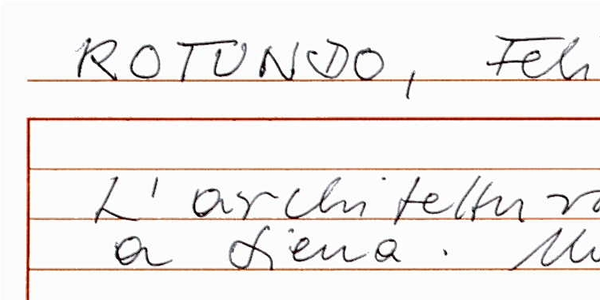 ROTUNDO, Feli
L'architettura
a Siena.